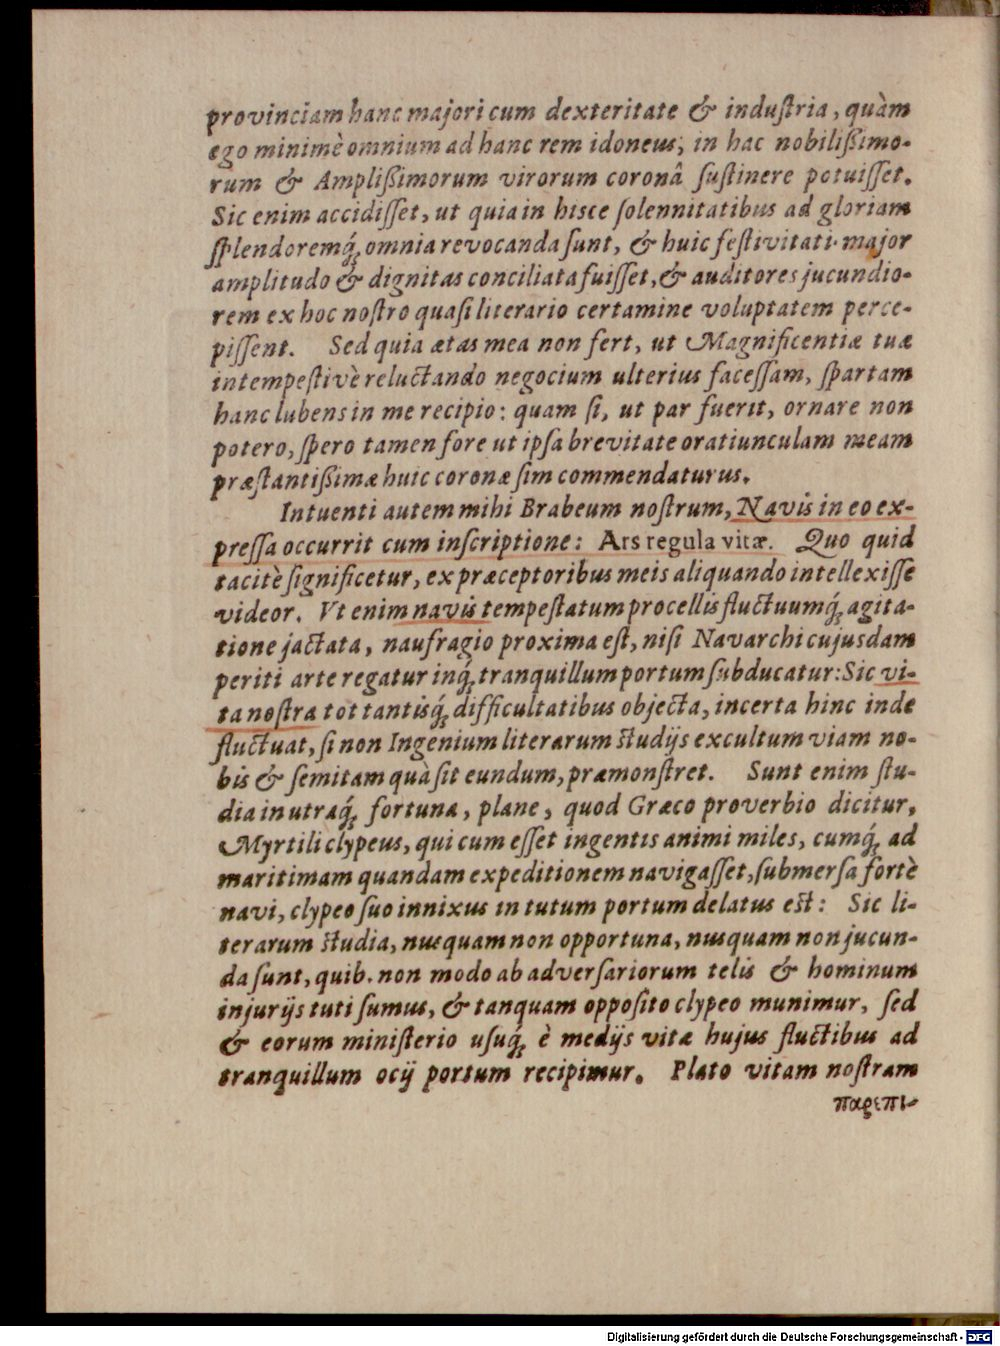 provinciam hanc majori cum dexteritate & induſtria, quàm
ego minimè omnium ad hanc rem idoneus, in hac nobilißimo-
rum & Amplißimorum virorum coronâ ſuſtinere potuiſſet.
Sic enim accidiſſet, ut quia in hisce ſolennitatibus ad gloriam
ſplendoremq́; omnia revocanda ſunt, & huic feſtivitati major
amplitudo & dignitas conciliata fuiſſet, & auditores jucundio-
rem ex hoc noſtro quaſi literario certamine voluptatem perce-
piſſent. Sed quia ætas mea non fert, ut Magnificentiæ tuæ
intempeſtivè reluctando negocium ulterius faceſſam, ſpartam
hanc lubens in me recipio: quam ſi, ut par fuerit, ornare non
potero, ſpero tamen fore ut ipſa brevitate oratiunculam meam
præſtantißimæ huic coronæ ſim commendaturus.
Intuenti autem mihi Brabeum noſtrum, Navis in eo ex-
preſſa occurrit cum inſcriptione: Ars regula vitæ. Quo quid
tacitè ſignificetur, ex præceptoribus meis aliquando intellexiſſe
videor. Vt enim navis tempeſtatum procellis fluctuumq́; agita-
tione jactata, naufragio proxima eſt, niſi Navarchi cujusdam
periti arte regatur inq́; tranquillum portum ſubducatur: Sic vi-
ta noſtra tot tantisq́; difficultatibus objecta, incerta hinc inde
fluctuat, ſi non Ingenium literarum ſtudijs excultum viam no-
bis & ſemitam quà ſit eundum, præmonſtret. Sunt enim ſtu-
dia in utraq́; fortuna, plane, quod Græco proverbio dicitur,
Myrtili clypeus, qui cum eſſet ingentis animi miles, cumq́; ad
maritimam quandam expeditionem navigaſſet, ſubmerſa fortè
navi, clypeo ſuo innixus in tutum portum delatus eſt: Sic li-
terarum ſtudia, nusquam non opportuna, nusquam non jucun-
da ſunt, quib. non modo ab adverſariorum telis & hominum
injurijs tuti ſumus, & tanquam oppoſito clypeo munimur, ſed
& eorum miniſterio uſuq́; è medijs vitæ hujus fluctibus ad
tranquillum ocij portum recipimur. Plato vitam noſtram
παρεπι-
Digitalisierung gefördert durch die Deutsche Forschungsgemeinschaft - DFG